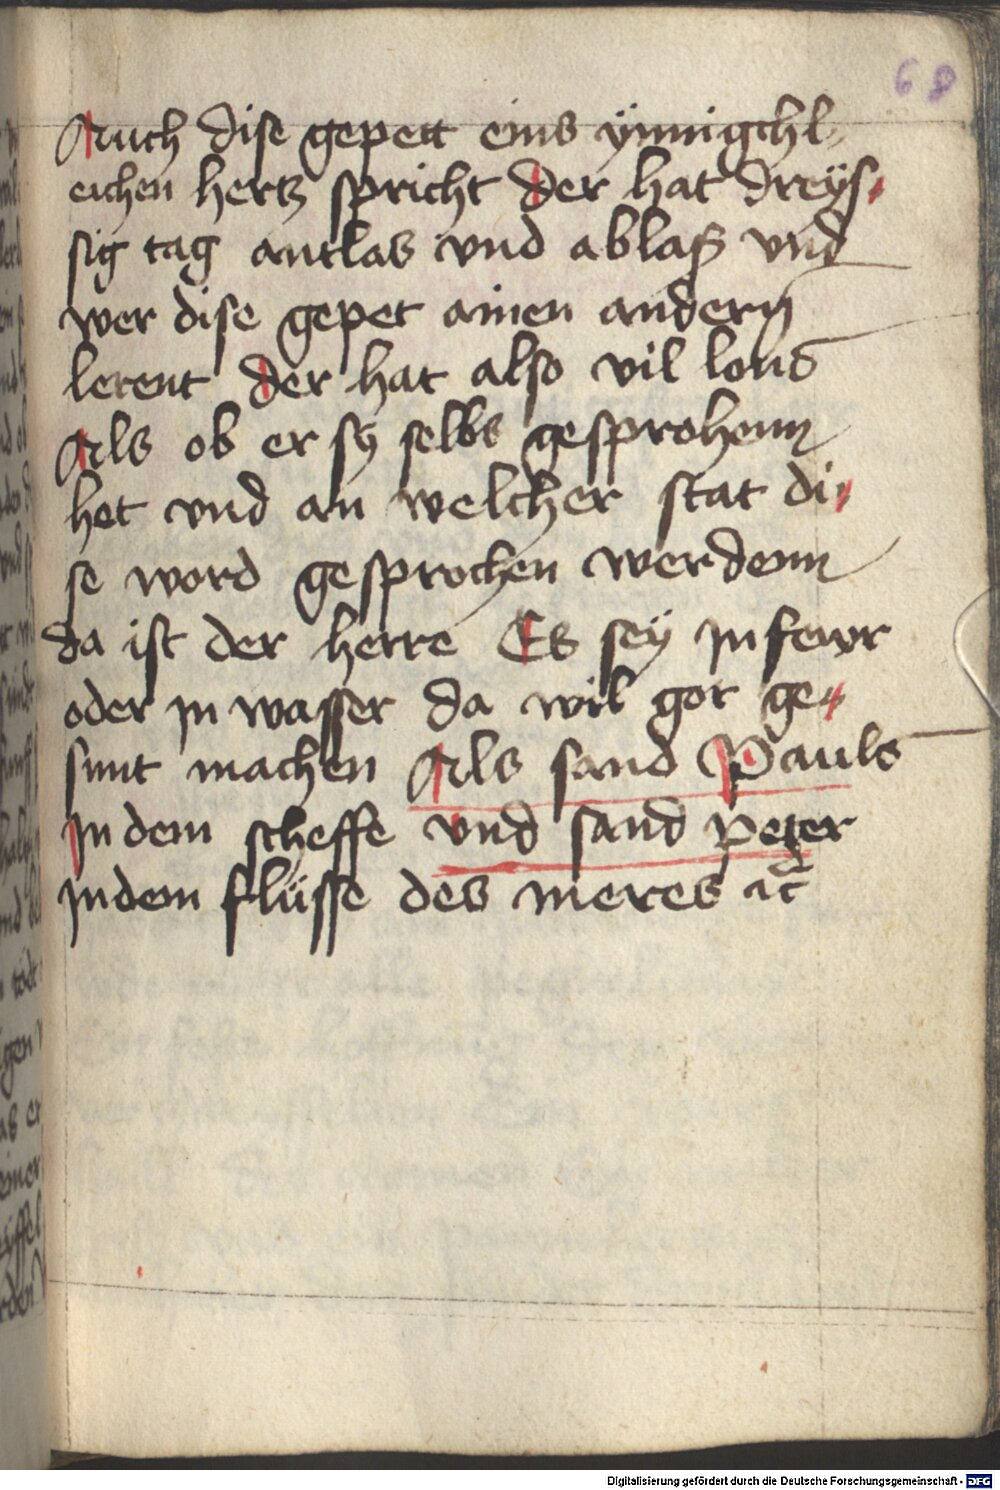 68
Auch dise gepett eins ÿnnigchl-
eichen hertz spricht der hat dreÿs-
sig tag antlas vnd ablaß vnd
wer dise gepet ainen andern
lerent der hat also vil lons
Als ob er sy selbs gesprohenn
het vnd an welcher stat di-
se word gesprochen werdenn
da ist der herre Es seÿ in fewr
oder in wasser da wil got ge-
sunt machen Als sand Pauls
In dem scheffe vnd sand peter
in dem flüsse des meres ꝛc̃
Digitalisierung gefördert durch die Deutsche Forschungsgemeinschaft - DFG